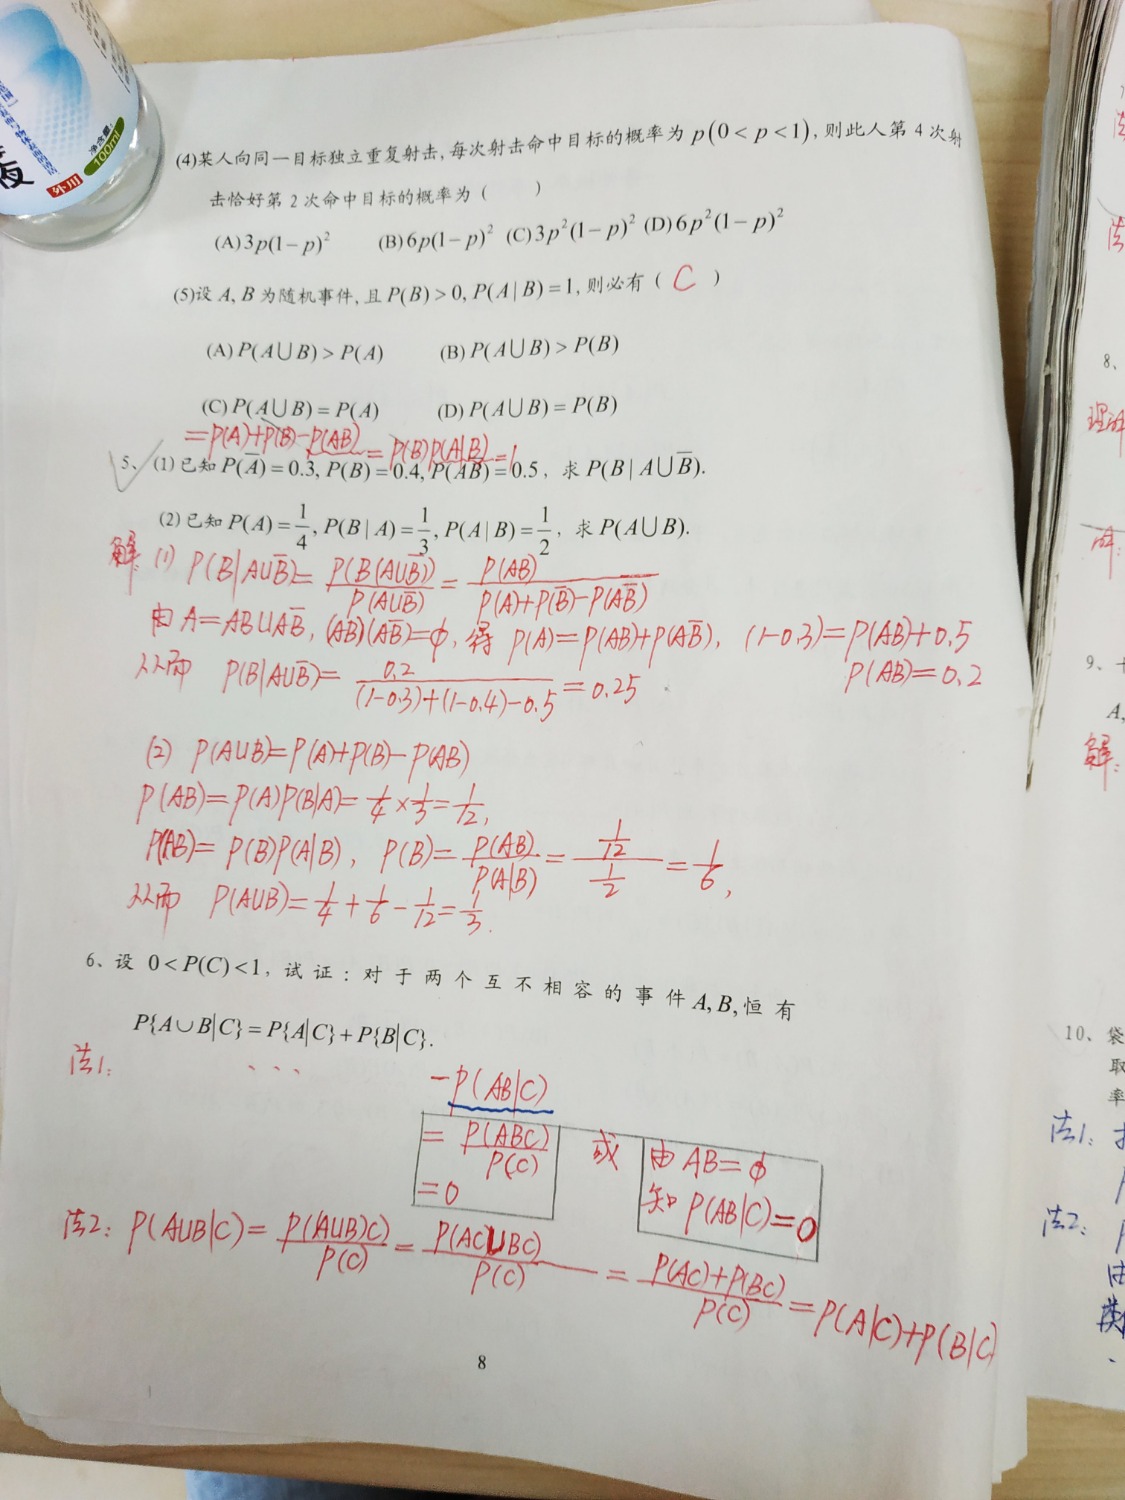 外用
净含量:
100ml
(4)某人向同一目标独立重复射击,每次射击命中目标的概率为 p(0 < p < 1),则此人第 4 次射
击恰好第 2 次命中目标的概率为 (    )
(A) 3p(1-p)²  (B) 6p(1-p)²  (C) 3p²(1-p)²  (D) 6p²(1-p)²
(5)设 A, B 为随机事件,且 P(B) > 0, P(A | B) = 1,则必有 ( C )
(A) P(A∪B) > P(A)  (B) P(A∪B) > P(B)
(C) P(A∪B) = P(A)  (D) P(A∪B) = P(B)
=P(A)+P(B)-P(AB) = P(B)P(A|B) =1
5、(1) 已知 P(A̅) = 0.3, P(B) = 0.4, P(AB̅) = 0.5, 求 P(B | A∪B̅).
(2) 已知 P(A) = 1/4, P(B | A) = 1/3, P(A | B) = 1/2, 求 P(A∪B).
解: (1) P(B|A∪B̅) = P(B(A∪B̅))/P(A∪B̅) = P(AB)/(P(A)+P(B̅)-P(AB̅))
由 A=AB∪AB̅, (AB)(AB̅)=φ, 得 P(A)=P(AB)+P(AB̅), (1-0.3)=P(AB)+0.5
P(AB)=0.2
从而 P(B|A∪B̅)= 0.2/((1-0.3)+(1-0.4)-0.5) = 0.25
(2) P(A∪B)=P(A)+P(B)-P(AB)
P(AB)=P(A)P(B|A)= 1/4 × 1/3 = 1/12,
P(AB)= P(B)P(A|B), P(B)= P(AB)/P(A|B) = (1/12)/(1/2) = 1/6,
从而 P(A∪B)= 1/4 + 1/6 - 1/12 = 1/3.
6、设 0 < P(C) < 1, 试证:对于两个互不相容的事件 A, B, 恒有
P{A∪B|C} = P{A|C} + P{B|C}.
法1: ...
-P(AB|C)
= P(ABC)/P(C)
=0
或
由 AB=φ
知 P(AB|C)=0
法2: P(A∪B|C)= P((A∪B)C)/P(C) = P(AC∪BC)/P(C) = (P(AC)+P(BC))/P(C) = P(A|C)+P(B|C)
8
8、
理解
解:
9、
A,
解:
10、袋
取
率
法1:
法2:
由